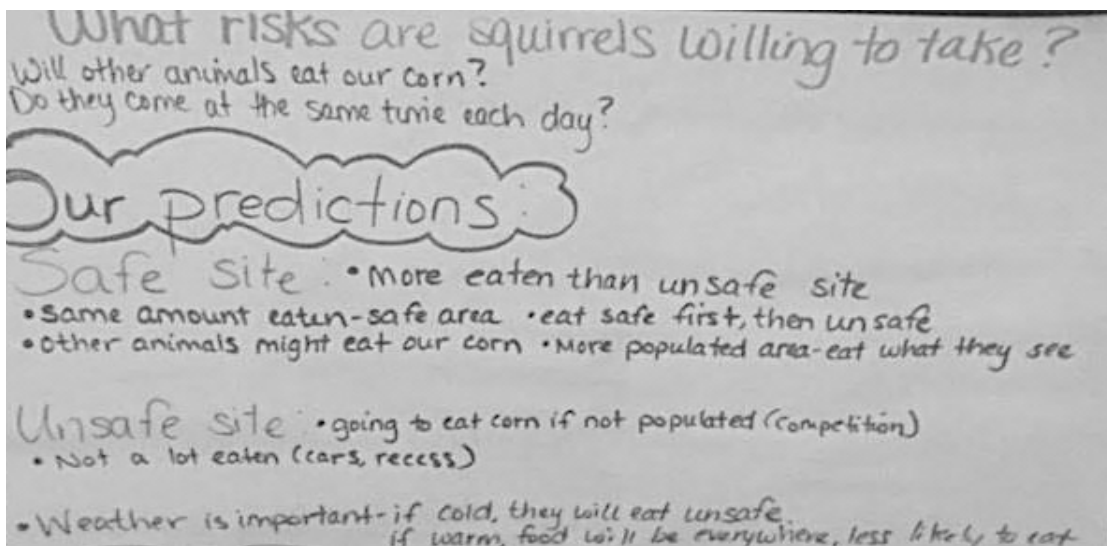 What risks are squirrels willing to take?
Will other animals eat our corn?
Do they come at the same time each day?
Our predictions:
Safe site: • More eaten than unsafe site
• Same amount eaten-safe area • eat safe first, then unsafe
• other animals might eat our corn • More populated area-eat what they see
Unsafe site: • going to eat corn if not populated (competition)
• Not a lot eaten (cars, recess)
• Weather is important-if cold, they will eat unsafe
if warm, food will be everywhere, less likely to eat